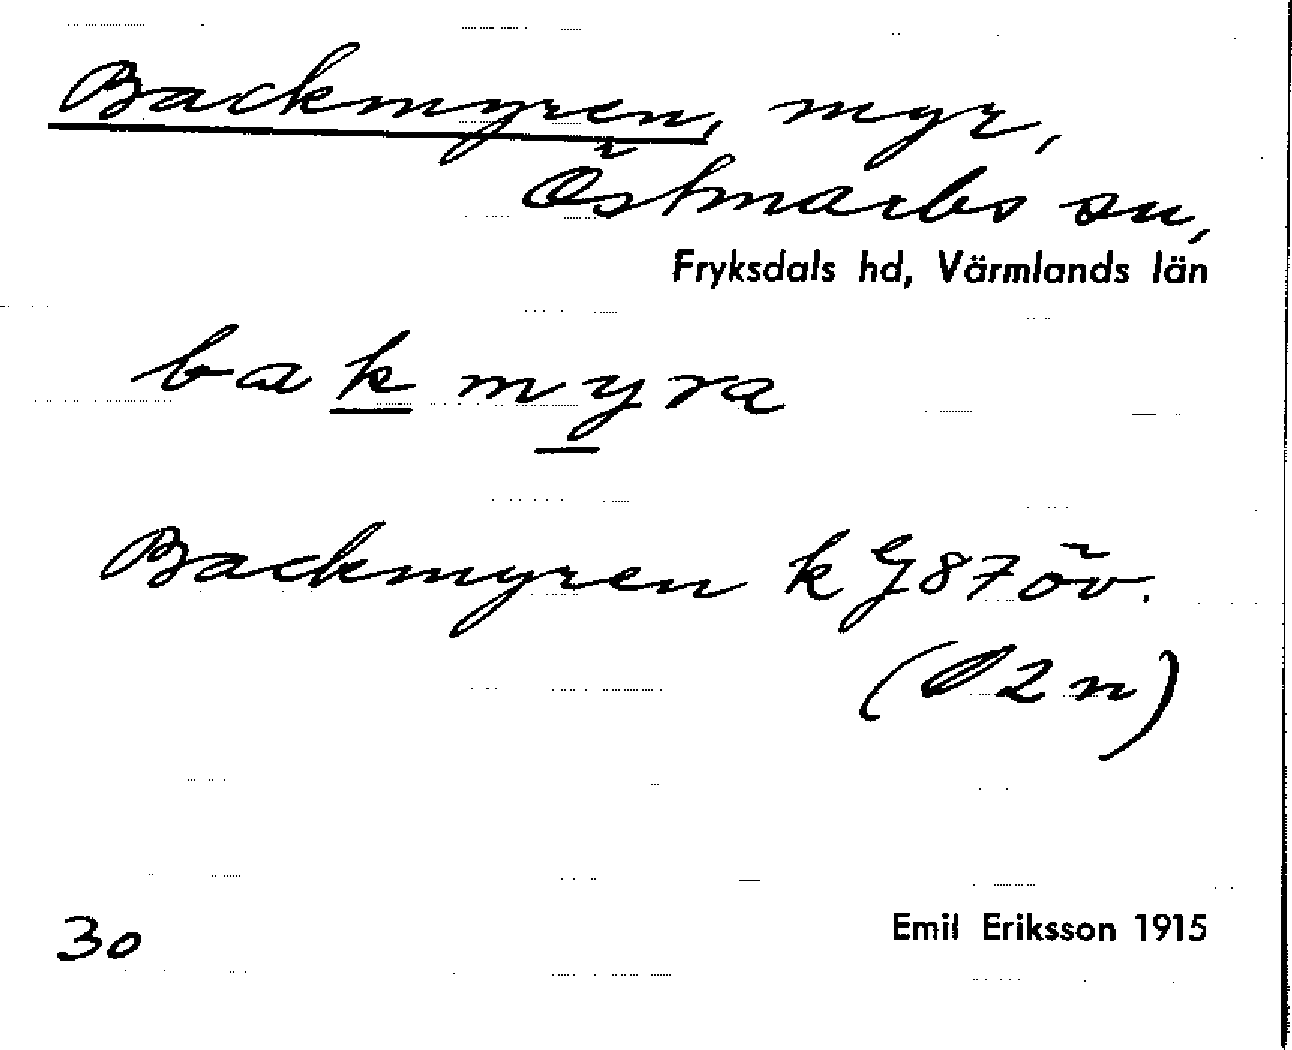 Backmyren, myr,
Östmarks sn,
Fryksdals hd, Värmlands län
bakmyra
Backmyren k G87öv.
(02n)
30
Emil Eriksson 1915